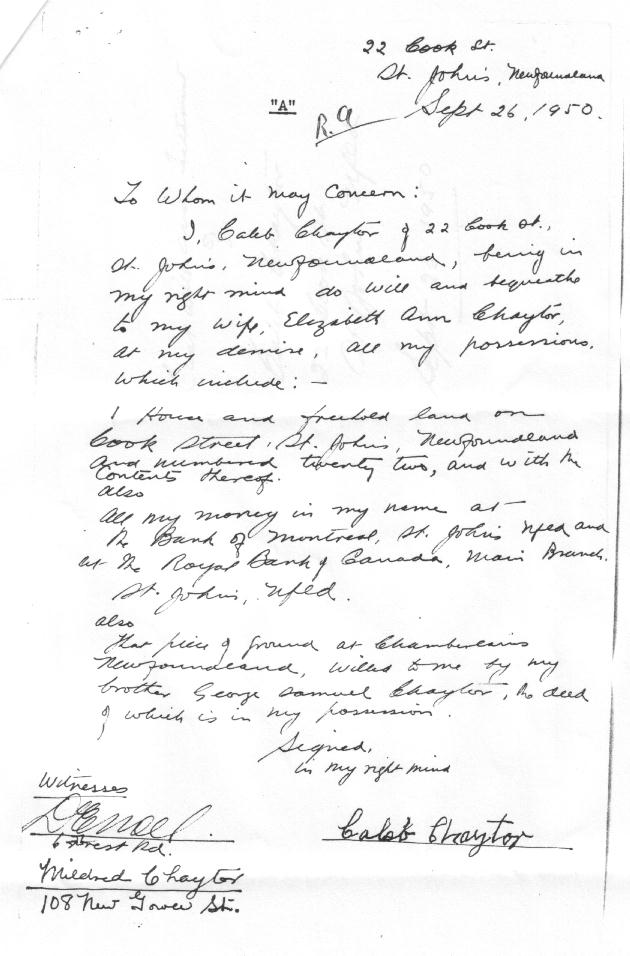 22 Cook St.
St. John's, Newfoundland
"A"
R.A
Sept 26, 1950.
To Whom it may Concern:
I, Caleb Chaytor of 22 Cook St.,
St. John's, Newfoundland, being in
my right mind do will and bequeathe
to my wife, Elizabeth Ann Chaytor,
at my demise, all my possessions.
Which include: -
1 House and freehold land on
Cook Street, St. John's, Newfoundland
and numbered twenty two, and with the
Contents thereof.
also
All my money in my name at
the Bank of Montreal, St. John's Nfld and
at the Royal Bank of Canada, Main Branch.
St. John's, Nfld.
also
That piece of ground at Chamberlains
Newfoundland, willed to me by my
brother George Samuel Chaytor, the deed
of which is in my possession.
Signed,
in my right mind
Witnesses
6 Forest Rd.
Caleb Chaytor
Mildred Chaytor
108 New Gower St.